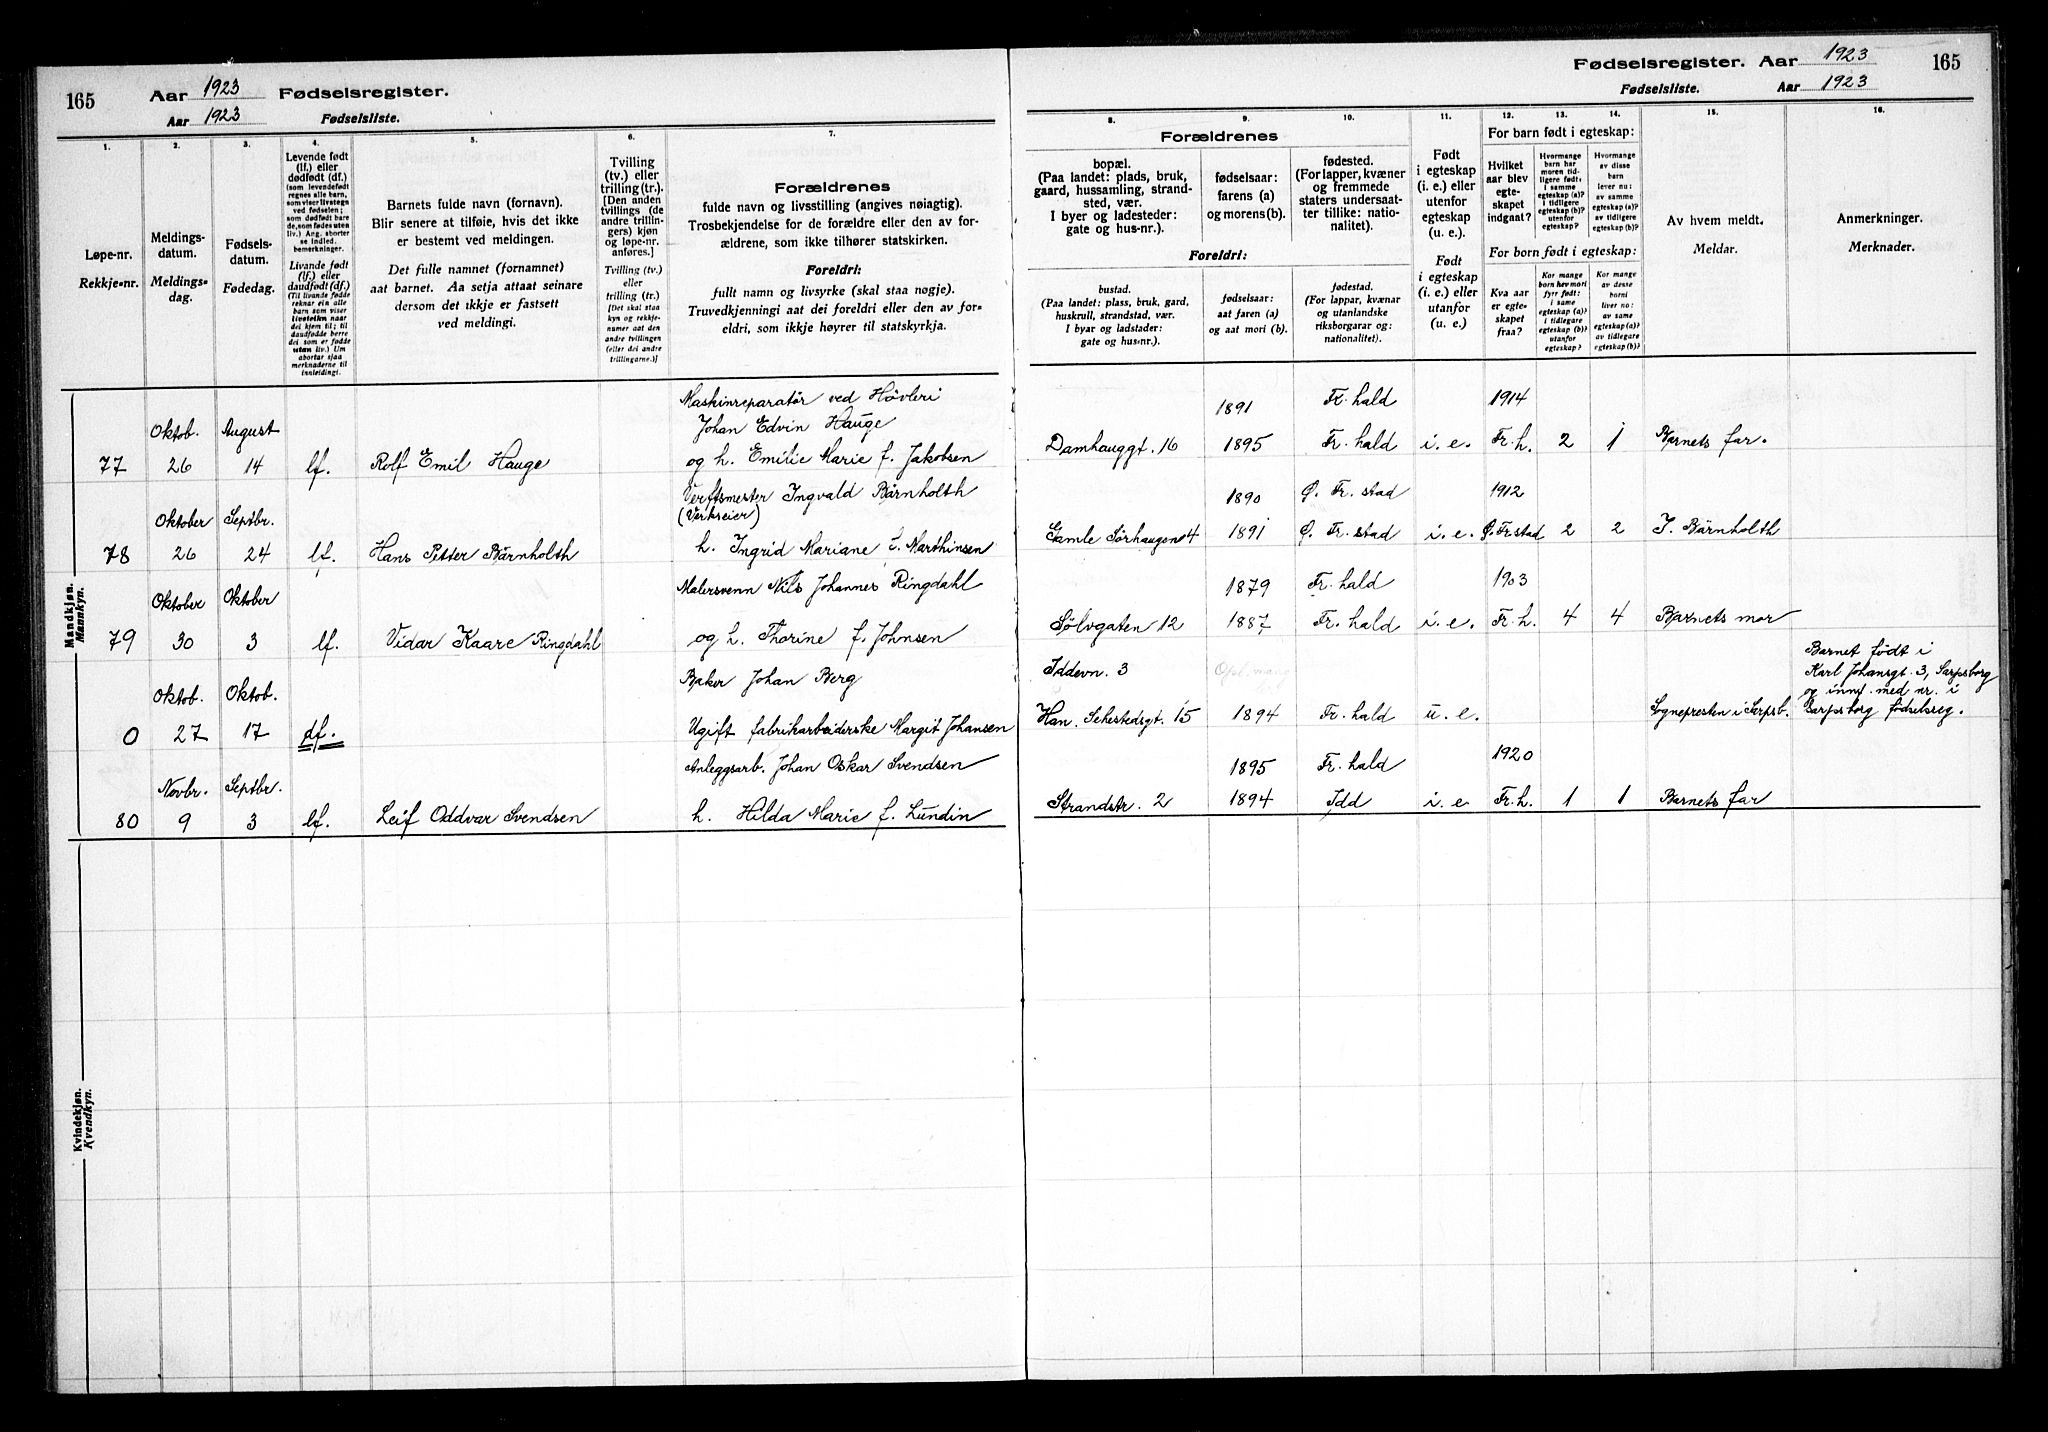 165
Aar 1923 Fødselsregister.
Aar 1923 Fødselsliste.
1.
Løpe-nr.
Rekkje-nr.
2.
Meldings-
datum.
Meldings-
dag.
3.
Fødsels-
datum.
Fødedag.
4.
Levende født
(lf.) eller
dødfødt (df.)
(som levendefødt
regnes alle barn,
som viser livstegn
ved fødselen;
som dødfødt bare
de, som fødes uten
liv.) Ang. aborter
se indled.
bemerkninger.
Livande født
(lf.) eller
daudfødt (df.)
(Til livande fødde
reknar ein alle
barn som viser
livsteikn naar
dei kjem til; til
daudfødde berre
dei som er fødde
utan liv.) Um
abortar sjaa
merknaderne til
innleidingi.
5.
Barnets fulde navn (fornavn).
Blir senere at tilføie, hvis det ikke
er bestemt ved meldingen.
Det fulle namnet (fornamnet)
aat barnet. Aa setja attaat seinare
dersom det ikkje er fastsett
ved meldingi.
6.
Tvilling
(tv.) eller
trilling (tr.).
[Den anden
tvillings (de
andre trillin-
gers) kjøn
og løpe-nr.
anføres.]
Tvilling (tv.)
eller
trilling (tr.)
[Det skal staa
kyn og rekkje-
numer aat den
andre tvillingen
(eller dei andre
trillingarne.)]
7.
Forældrenes
fulde navn og livsstilling (angives nøiagtig).
Trosbekjendelse for de forældre eller den av for-
ældrene, som ikke tilhører statskirken.
Foreldri:
fullt namn og livsyrke (skal staa nøgje).
Truvedkjenningi aat dei foreldri eller den av for-
eldri, som ikkje høyrer til statskyrkja.
Mandkjøn.
Mannkyn.
Maskinreparatør ved Høvleri
Oktob. August Johan Edvin Hauge
77 26 14 lf. Rolf Emil Hauge og h. Emilie Marie f. Jakobsen
Verftsmester Ingvald Bärnholth
Oktober Septbr. (Verkseier)
78 26 24 lf. Hans Petter Bärnholth h. Ingrid Mariane f. Marthinsen
Malersvenn Nils Johannes Ringdahl
Oktober Oktober
79 30 3 lf. Vidar Kaare Ringdahl og h. Thorine f. Johnsen
Baker Johan Berg
Oktob. Oktob.
0 27 17 df. Ugift fabrikarbeiderske Margit Johansen
Anleggsarb. Johan Oskar Svendsen
Novbr. Septbr.
80 9 3 lf. Leif Oddvar Svendsen h. Hilda Marie f. Lundin
Kvindekjøn.
Kvendkyn.
Fødselsregister. Aar 1923 165
Fødselsliste. Aar 1923
8.
Forældrenes
bopæl.
(Paa landet: plads, bruk,
gaard, hussamling, strand-
sted, vær.
I byer og ladesteder:
gate og hus-nr.).
9.
fødselsaar:
farens (a)
og morens (b).
10.
fødested.
(For lapper, kvæner
og fremmede
staters undersaat-
ter tillike: natio-
nalitet).
Foreldri:
bustad.
(Paa landet: plass, bruk, gard,
huskrull, strandstad, vær.
I byar og ladstader:
gate og hus-nr.).
fødselsaar:
aat faren (a)
og aat mori (b).
fødestad.
(For lappar, kvænar
og utanlandske
riksborgarar og:
nationalitet).
11.
Født
i egteskap
(i. e.) eller
utenfor
egteskap
(u. e.).
Født
i egteskap
(i. e.) eller
utanfor
(u. e.).
12. 13. 14.
For barn født i egteskap:
Hvilket
aar blev
egte-
skapet
indgaat?
Hvormange
barn har
moren tid-
ligere født:
i samme
egteskap (a)?
i tidligere
egteskap (b)?
utenfor
egteskap?
Hvormange
av disse
barn
lever nu:
av samme
egteskap (a)?
av tidligere
egteskap (b)?
For born født i egteskap:
Kva aar
er egte-
skapet
fraa?
Kor mange
born hev mori
fyrr født:
i same
egteskap (a)?
i tidlegare
egteskap (b)?
utanfor
egteskap?
Kor mange
av desse
borni
liver no:
av same
egteskap (a)?
av tidlegare
egteskap (b)?
15.
Av hvem meldt.
Meldar.
16.
Anmerkninger.
Merknader.
1891 Fr. hald 1914
Damhauggt. 16 1895 Fr. hald i. e. Fr. h. 2 1 Barnets far.
1890 Ø. Fr. stad 1912
Gamle Sørhaugen 4 1891 Ø. Fr. stad i. e. Ø. Fr stad 2 2 I. Bärnholth
1879 Fr. hald 1903
Sølvgaten 12 1887 Fr. hald i. e. Fr. h. 4 4 Barnets mor
Iddevn. 3 Opl. mang.
Han. Sehestedsgt. 15 1894 Fr. hald u. e. Sognepresten i Sarpsb.
Barnet født i
Karl Johansgt. 3, Sarpsborg
og innf. med nr. i
Sarpsborg fødselsreg.
1895 Fr. hald 1920
Strandstr. 2 1894 Idd i. e Fr. h. 1 1 Barnets far